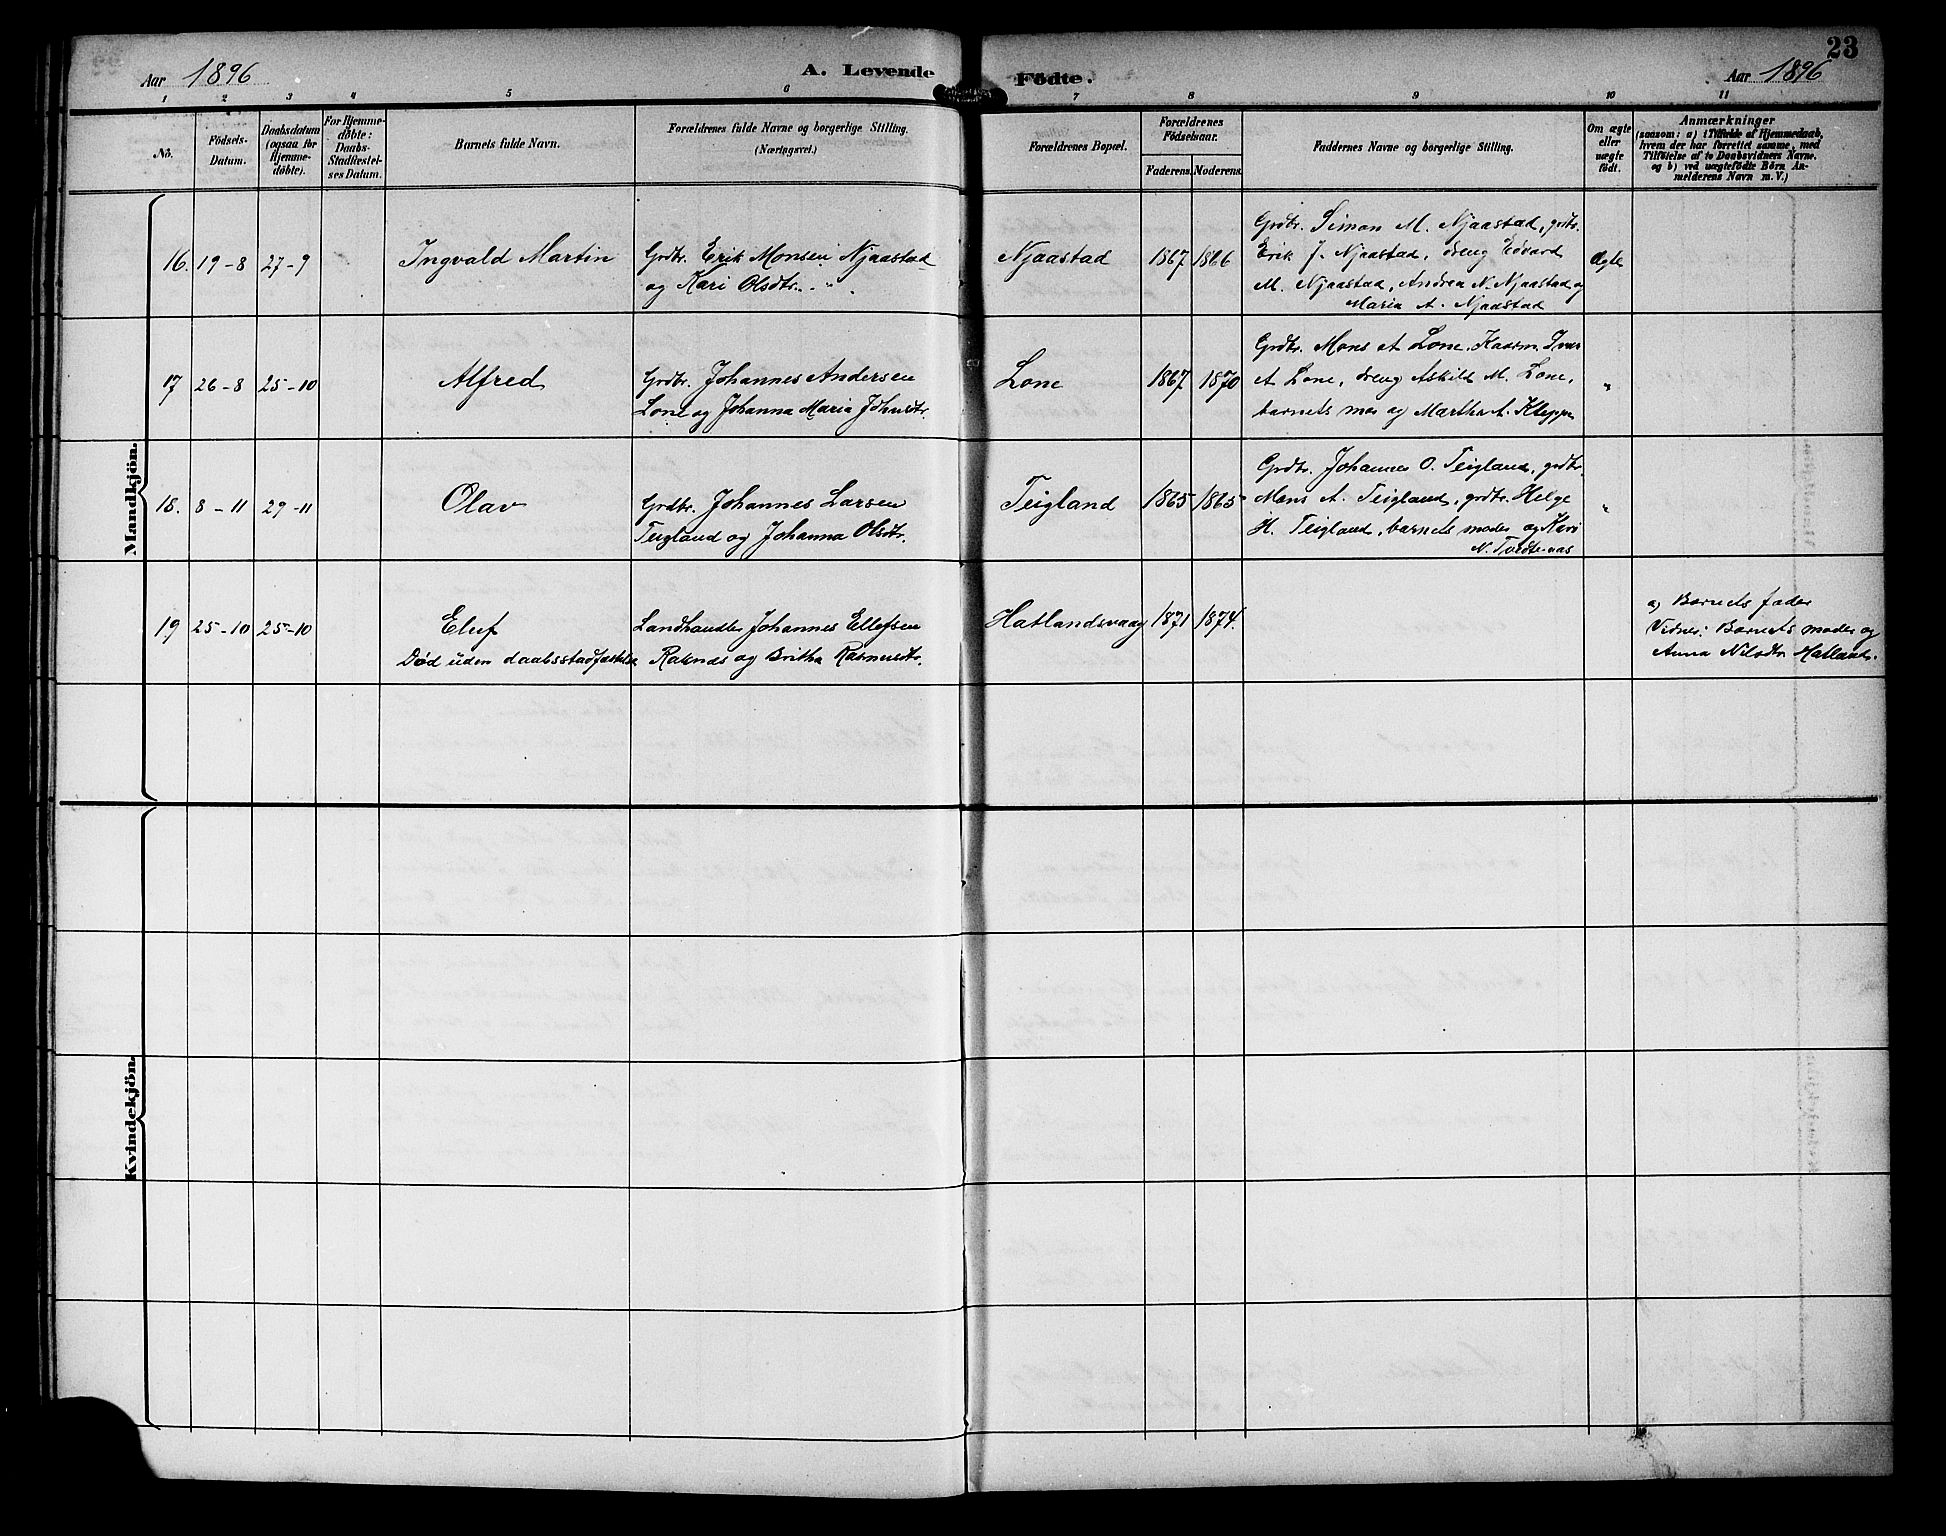 Aar 1896 A. Levende Födte. Aar 1896 23
1 2 3 4 5 6 7 8 9 10 11
No. Födsels-Datum. Daabsdatum (ogsaa for Hjemme-döbte). For Hjemme-döbte: Daabs-Stadfæstel-ses Datum. Barnets fulde Navn. Forældrenes fulde Navne og borgerlige Stilling. (Næringsvei.) Forældrenes Bopæl. Forældrenes Födselsaar. Faderens. Moderens. Faddernes Navne og borgerlige Stilling. Om ægte eller uægte födt. Anmærkninger (saasom: a) i Tilfælde af Hjemmedaab, hvem der har forrettet samme, med Tilföielse af to Daabsvidners Navne, og b) ved uægtefödte Börn An-melderens Navn m. V.)
Mandkjön.
16. 19-8 27-9 Ingvald Martin
Grdbr. Erik Monsen Njaastad
og Kari Olsdtr. - " -
Njaastad 1867 1866
Grdbr. Simon M. Njaastad, grdbr.
Erik J. Njaastad, dreng Edvard
M. Njaastad, Andrea N. Njaastad og
Maria A. Njaastad
Ægte
17 26-8 25-10 Alfred
Grdbr. Johannes Andersen
Lone og Johanna Maria Johnsdtr.
Lone 1867 1870
Grdbr. Mons A Lone, Kaarm. Ivar
A Lone, dreng Askild M. Lone,
barnets mor og Martha A. Kleppe
"
18. 8-11 29-11 Olav
Grdbr. Johannes Larsen
Teigland og Johanna Olsdtr.
Teigland 1865 1865
Grdbr. Johannes O. Teigland, grdbr.
Mons A. Teigland, grdbr. Helge
H. Teigland, barnets moder og Kari
N. Tvedtenaas
"
19 25-10 25-10 Eluf
Død uden daabsstadfæstelse
Landhandler Johannes Ellefsen
Raknæs og Britha Rasmusdtr.
Hatlandsvaag 1871 1874.
a) Barnets fader
Vidner: Barnets moder og
Anna Nilsdtr. Hatland.
Kvindekjön.